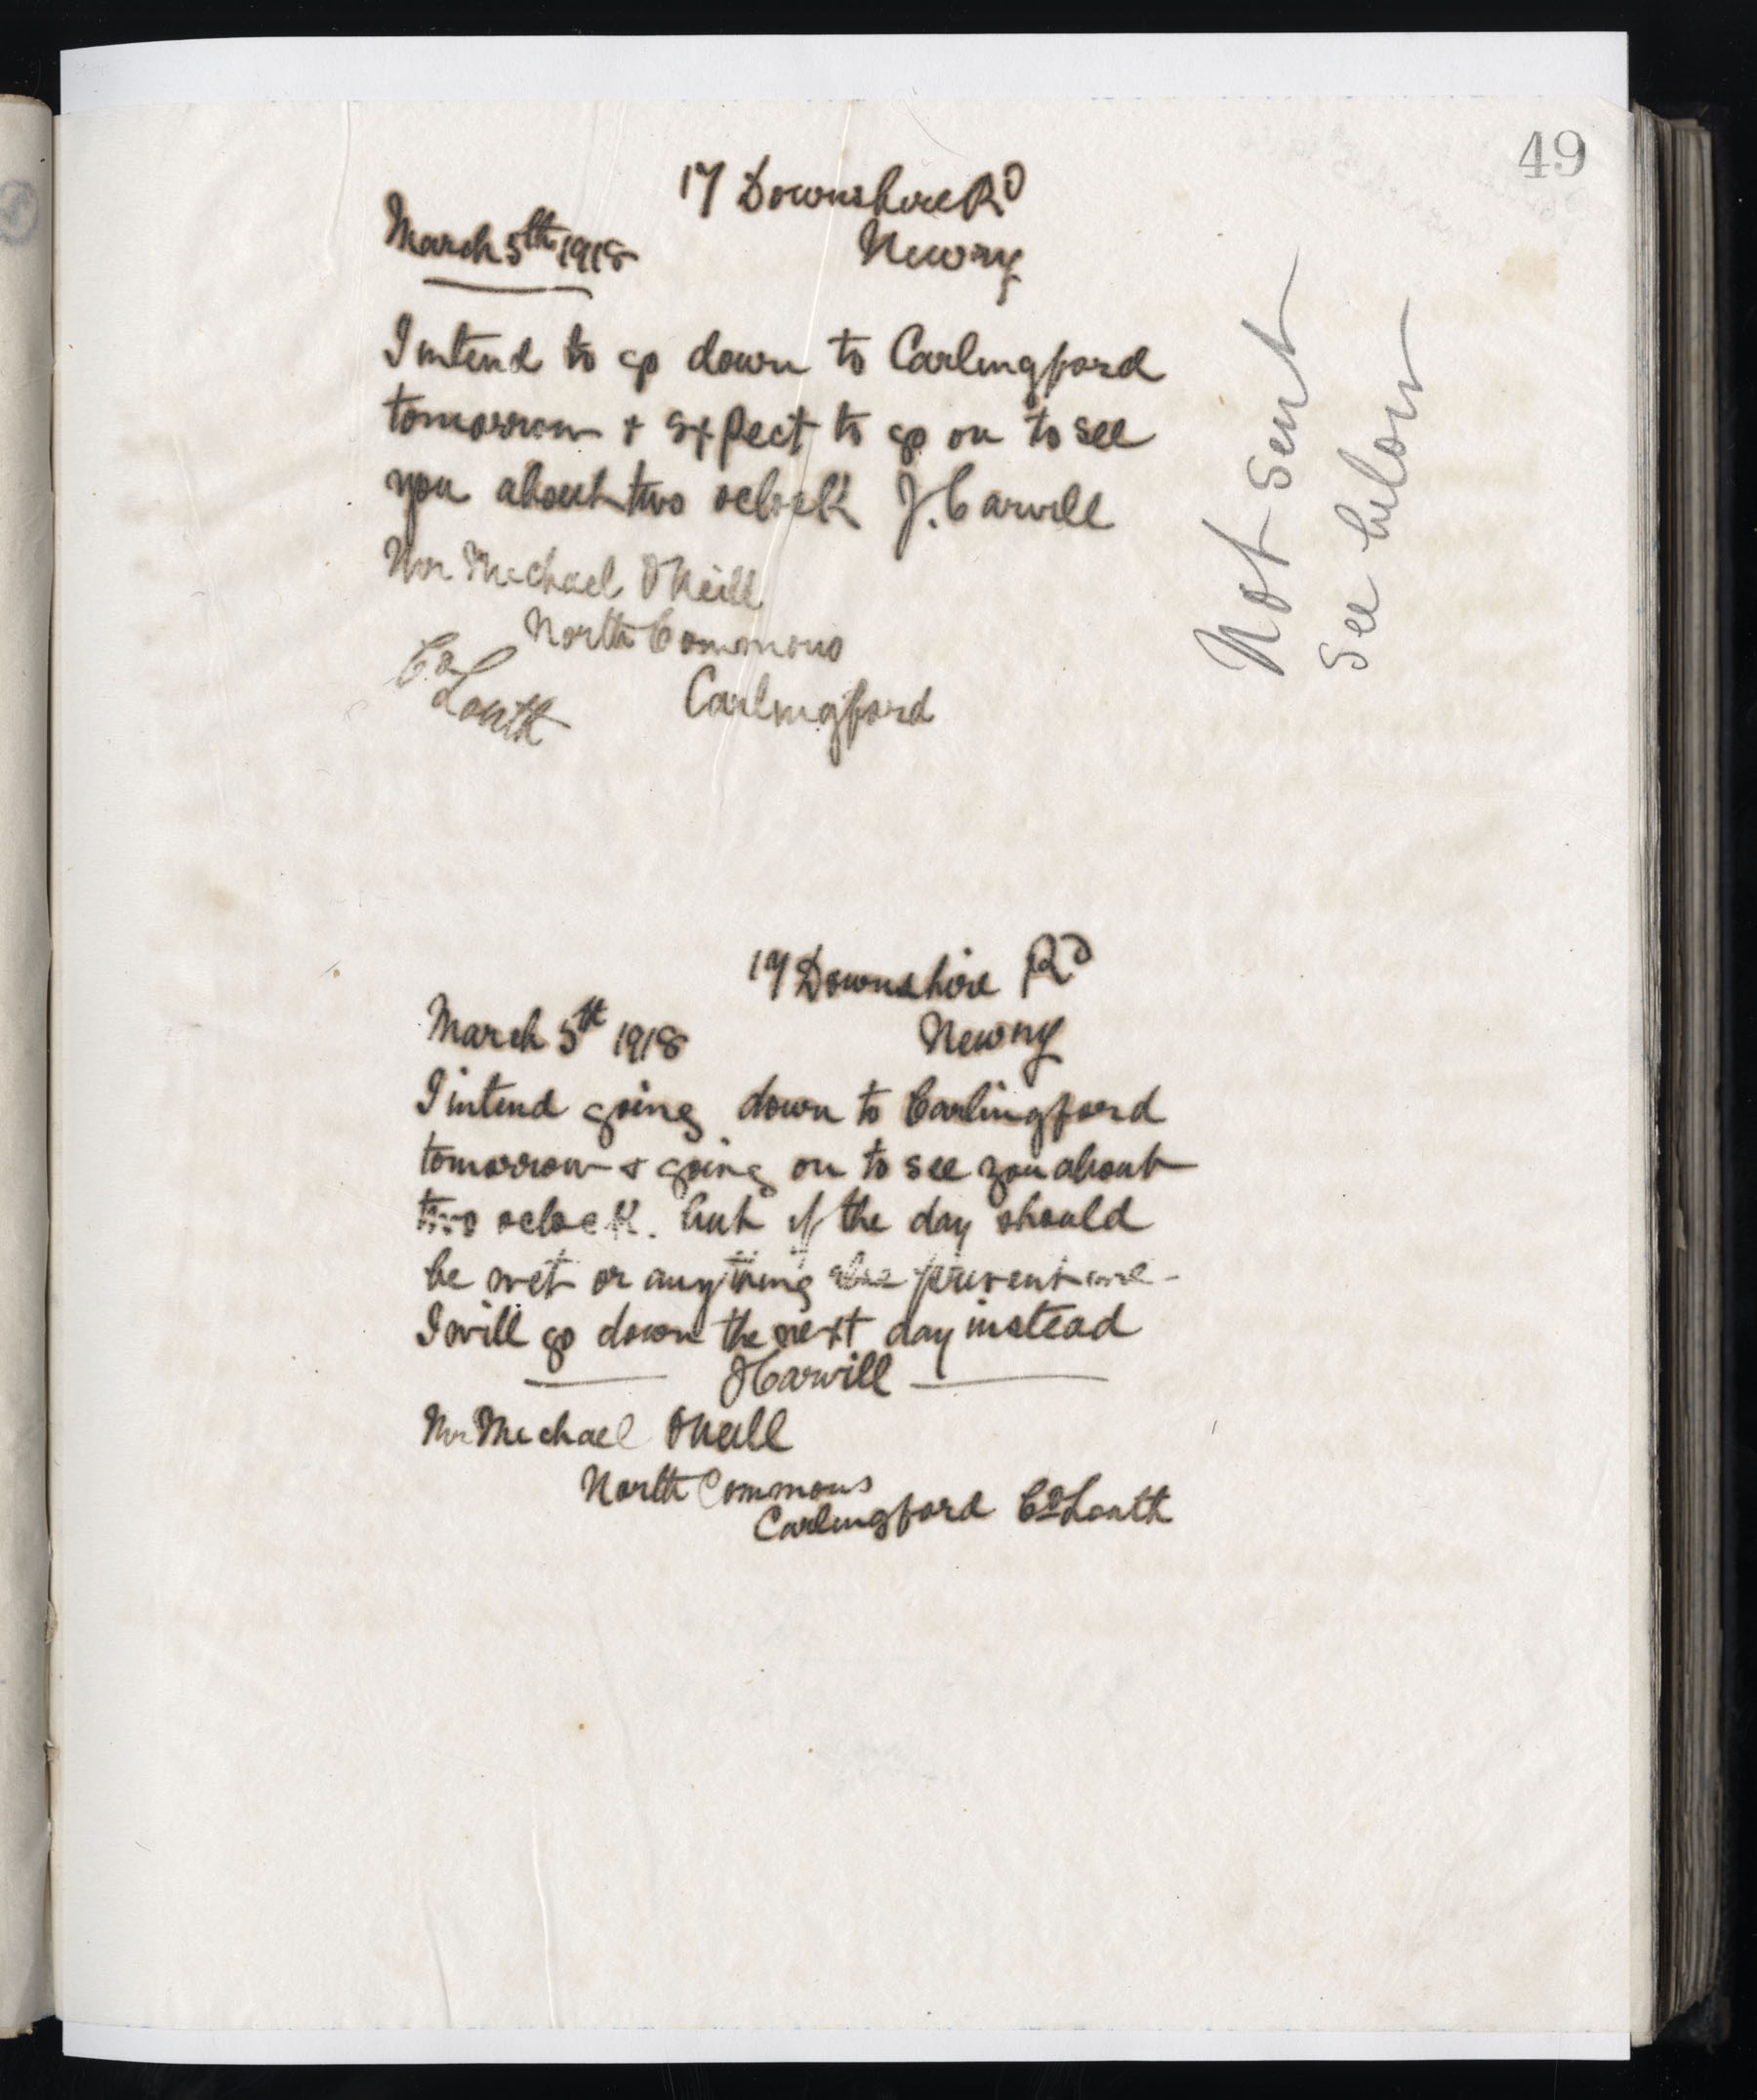 49
17 Downshire Rd
March 5th 1918 Newry
I intend to go down to Carlingford
tomorrow & expect to go on to see
you about two oclock J. Carvill
Mr Michael ONeill
North Commons
Co Louth
Carlingford
Not sent
see below
17 Downshire Rd
March 5th 1918 Newry
I intend going down to Carlingford
tomorrow & going on to see you about
two oclock. but if the day should
be wet or anything else prevent me -
I will go down the next day instead
JCarvill
Mr Michael ONeill
North Commons
Carlingford Co Louth